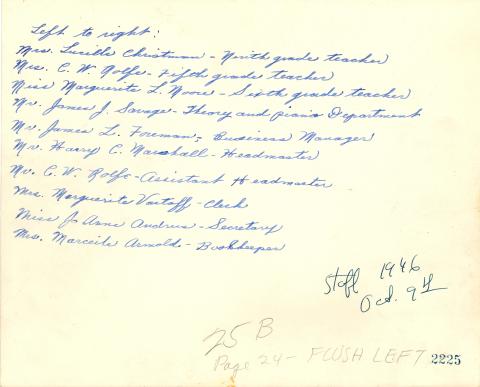 Left to right:
Mrs. Lucille Christman - Ninth grade teacher
Mrs. C. W. Rolfe - Fifth grade teacher
Miss Marguerite L. Moore - Sixth grade teacher
Mr. James J. Savage - Theory and piano Department
Mr. James L. Foreman, Business Manager
Mr. Harry C. Marshall - Headmaster
Mr. C. W. Rolfe - Assistant Headmaster
Mrs. Marguerite - Clerk
Miss Jo Anne Andrus - Secretary
Mrs. Marceile Arnold - Bookkeeper
Staff 1946
Oct. 94
25 B
Page 24 - FLUSH LEFT
2225